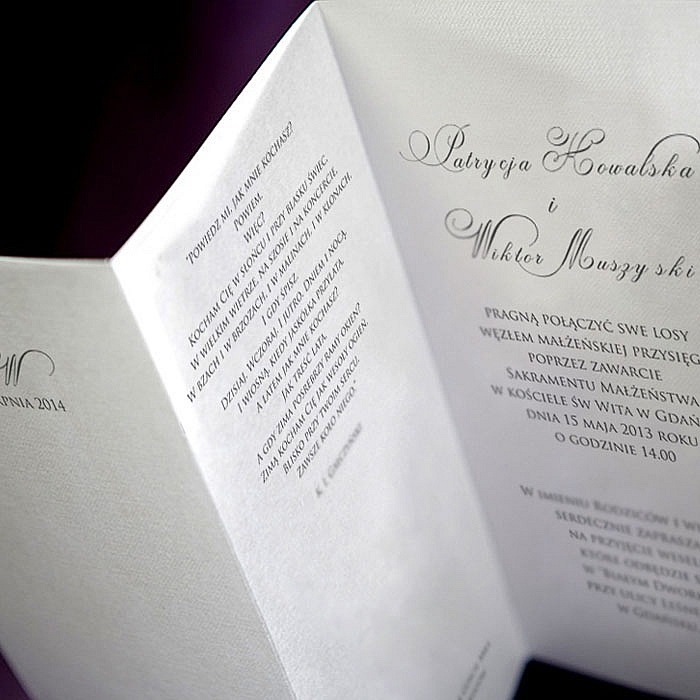 W
RPNIA 2014
"POWIEDZ MI, JAK MNIE KOCHASZ?
POWIEM.
WIĘC?
KOCHAM CIĘ W SŁOŃCU I PRZY BLASKU ŚWIEC.
W WIELKIM WIETRZE, NA SZOSIE I NA KONCERCIE.
W BZACH I W BRZOZACH, I W MALINACH, I W KLONACH.
I GDY ŚPISZ.
DZISIAJ, WCZORAJ, I JUTRO, DNIEM I NOCĄ.
I WIOSNĄ, KIEDY JASKÓŁKA PRZYLATA.
A LATEM JAK MNIE KOCHASZ?
JAK TREŚĆ LATA.
A GDY ZIMA POSREBRZY RAMY OKIEN?
ZIMĄ KOCHAM CIĘ JAK WESOŁY OGIEŃ.
BLISKO PRZY TWOIM SERCU.
ZAWSZE KOŁO NIEGO."
K. I. GAŁCZYŃSKI
Patrycja Kowalska
i
Wiktor Muszyński
PRAGNĄ POŁĄCZYĆ SWE LOSY
WĘZŁEM MAŁŻEŃSKIEJ PRZYSIĘG
POPRZEZ ZAWARCIE
SAKRAMENTU MAŁŻEŃSTWA
W KOŚCIELE ŚW WITA W GDAŃ
DNIA 15 MAJA 2013 ROKU
O GODZINIE 14.00
W IMIENIU RODZICÓW I W
SERDECZNIE ZAPRASZA
NA PRZYJĘCIE WESEL
KTÓRE ODBĘDZIE
W "BIAŁYM DWOR
PRZY ULICY LEŚN
W GDAŃSKU